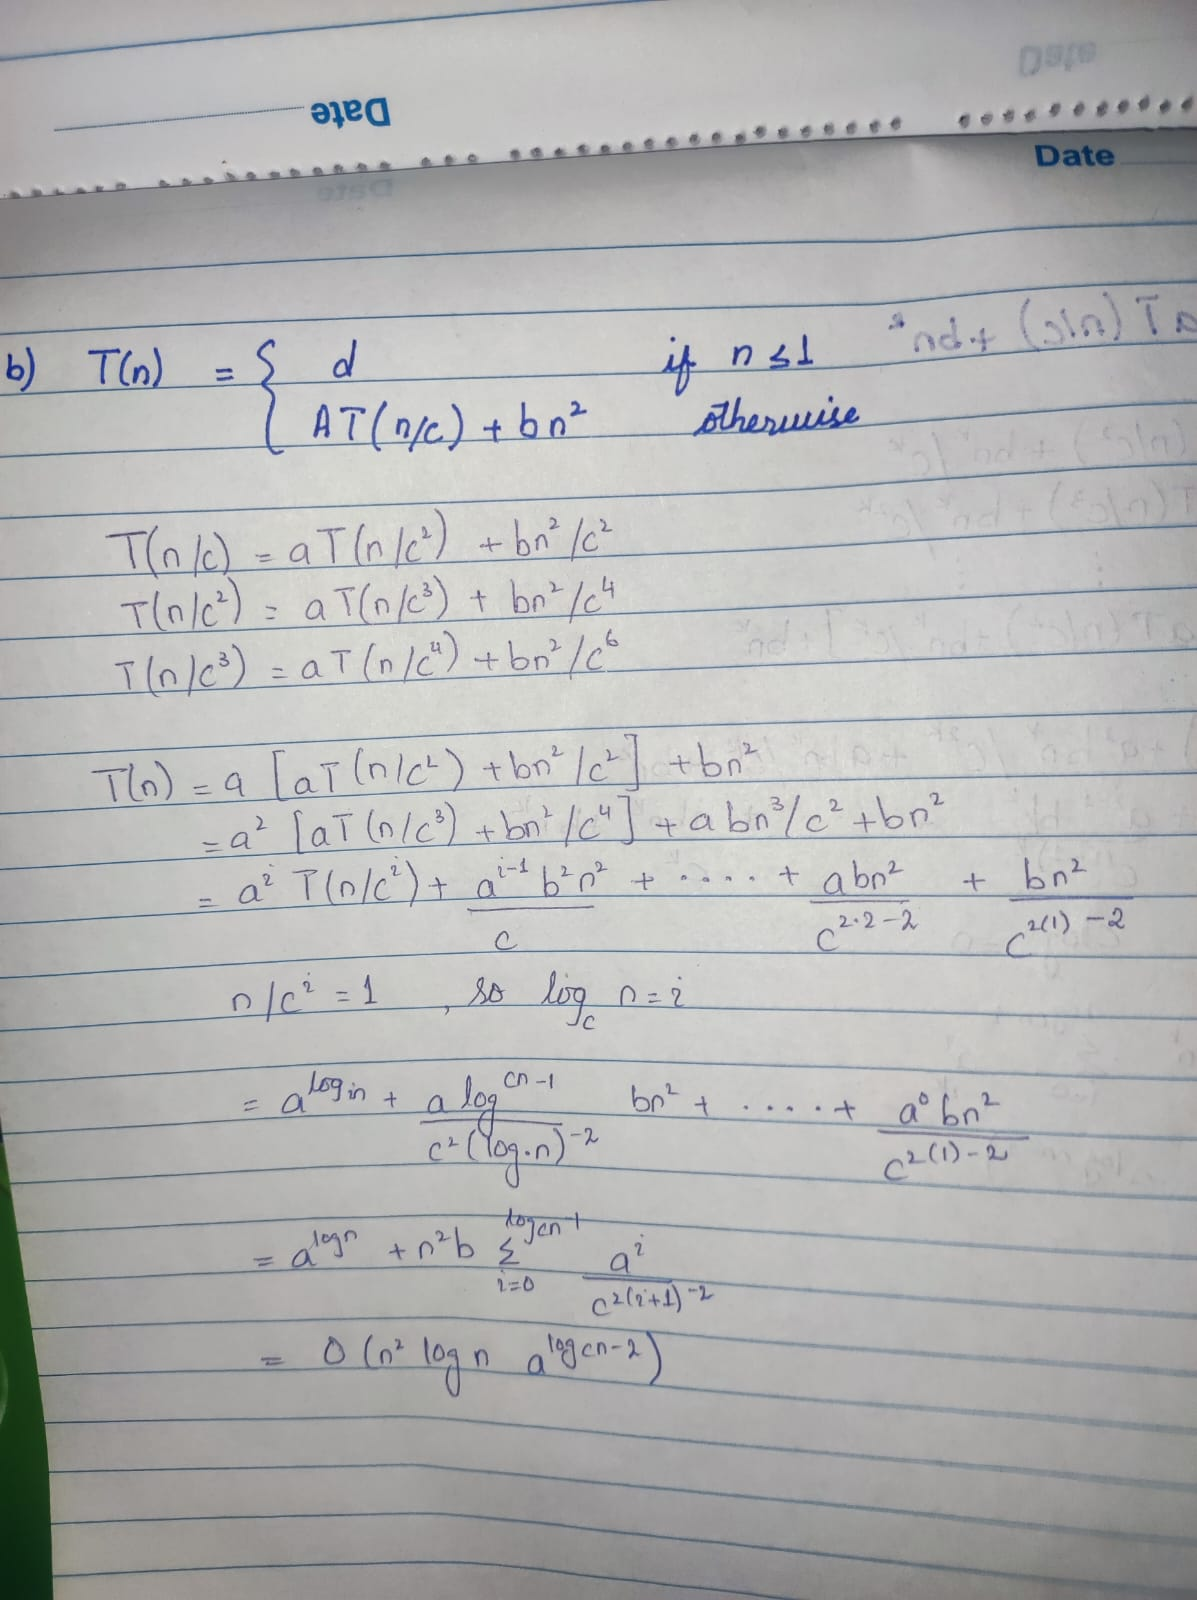 Date
Date
b) T(n) = { d if n ≤ 1
AT(n/c) + bn² otherwise
T(n/c) = aT(n/c²) + bn²/c²
T(n/c²) = aT(n/c³) + bn²/c⁴
T(n/c³) = aT(n/c⁴) + bn²/c⁶
T(n) = a [aT(n/c²) + bn²/c²] + bn²
= a² [aT(n/c³) + bn²/c⁴] + abn³/c² + bn²
= aⁱ T(n/cⁱ) + aⁱ⁻¹ b²n² / c + ..... + abn² / c^(2·2-2) + bn² / c^(2(1)-2)
n/cⁱ = 1 , so log_c n = i
= a^(log in) + a log^(cn-1) / c²(log.n)^(-2) bn² + ..... + a⁰bn² / c^(2(1)-2)
= a^(logn) + n²b Σ_(i=0)^(logcn-1) aⁱ / c^(2(i+1)-2)
= O(n² log n a^(logcn-2))